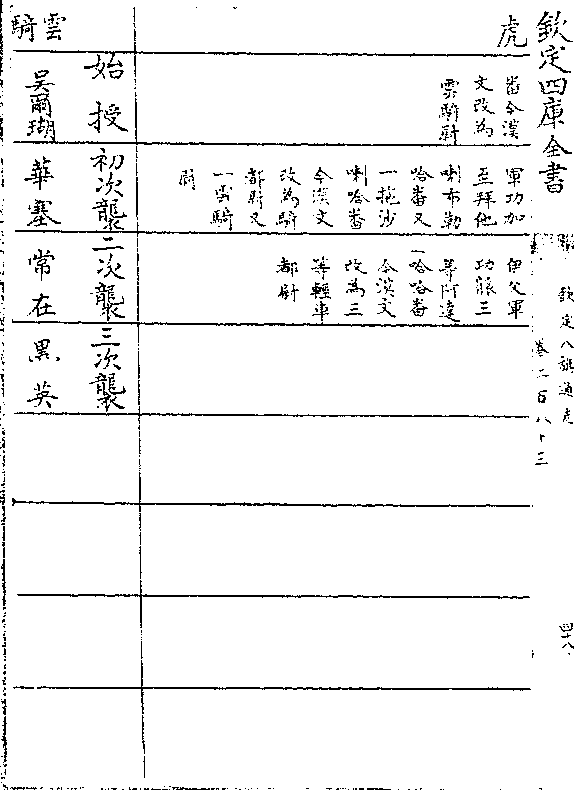 欽定四庫全書
欽定八旗通志
卷二百八十三
四十八
虎
畨今漢
文改為
雲騎尉
軍功加
至拜他
喇布勒
哈畨又
一拖沙
喇哈畨
今漢文
改為騎
都尉又
一雲騎
尉
伊父軍
功陞三
等阿達
哈哈畨
今漢文
改為三
等輕車
都尉
始授
初次襲
二次襲
三次襲
雲騎
吳爾瑚
華塞
常在
黑英